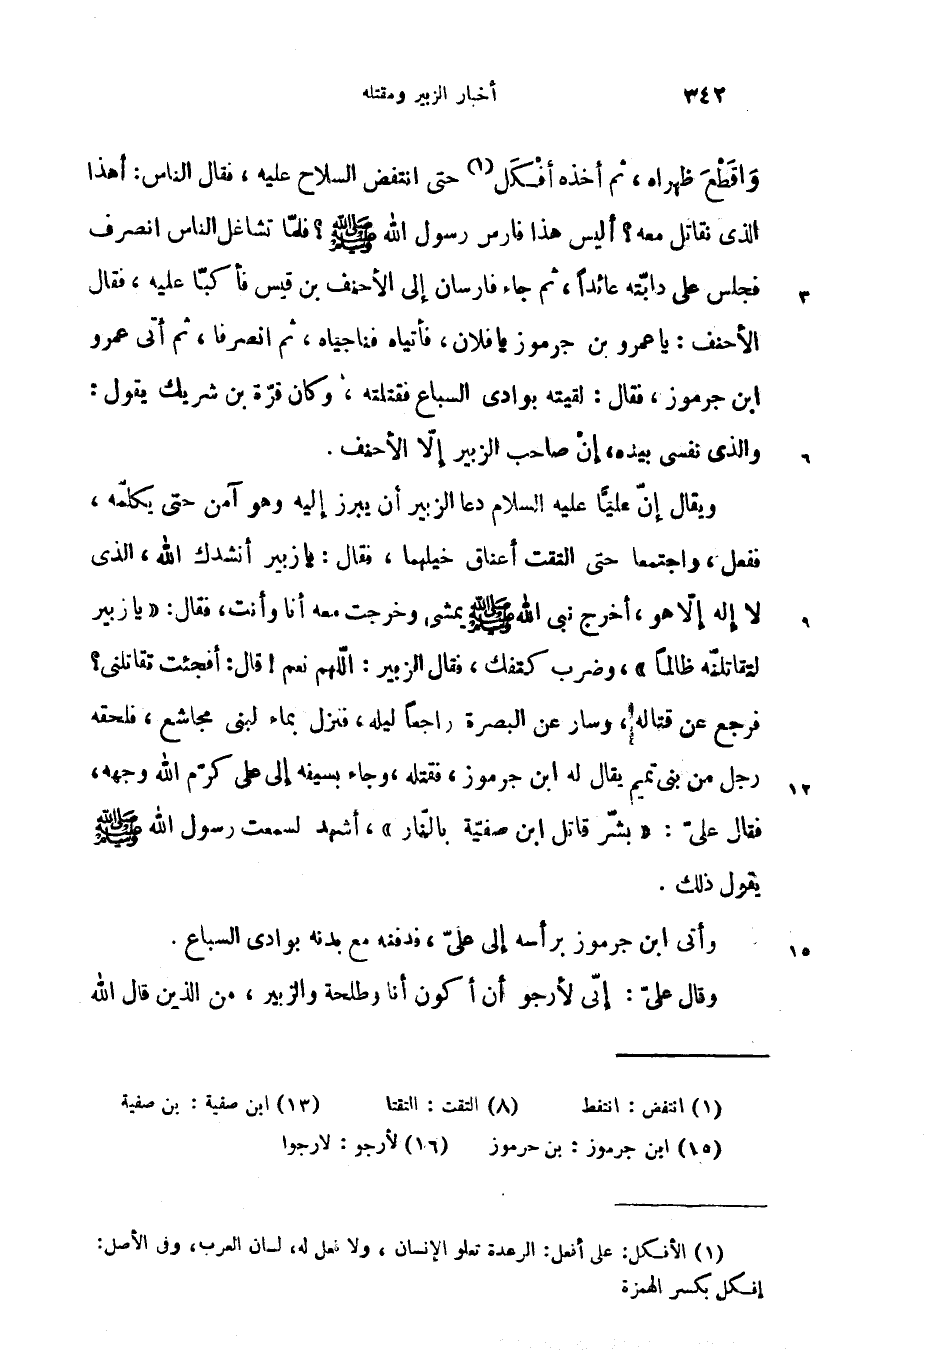 ٣٤٢ أخبار الزبير ومقتله
وَاقَطْعَ ظهراه ، ثم أخذه أفْـكَل(١) حتى انتفض السلاح عليه ، فقال الناس: أهذا
الذى نقاتل معه؟ أليس هذا فارس رسول الله ﷺ ؟ فلمّا تشاغل الناس انصرف
٣ فجلس على دابّته عائداً ، ثم جاء فارسان إلى الأحنف بن قيس فأكبّا عليه ، فقال
الأحنف : يا عمرو بن جرموز يا فلان ، فأتياه فناجياه ، ثم انصرفا ، ثم أتى عمرو
ابن جرموز ، فقال : لقيته بوادى السباع فقتلته ، وكان قرّة بن شريك يقول :
٦ والذى نفسى بيده، إنْ صاحب الزبير إلّا الأحنف .
ويقال إنّ عليًّا عليه السلام دعا الزبير أن يبرز إليه وهو آمن حتى يكلّمه ،
ففعل ، واجتمعا حتى التقت أعناق خيلهما ، فقال : يا زبير أنشدك الله ، الذى
٩ لا إله إلّا هو ، أخرج نبى الله ﷺ يمشى وخرجت معه أنا وأنت، فقال: « يا زبير
لتقاتلنّه ظالماً » ، وضرب كتفك ، فقال الزبير : اللّهم نعم ! قال: أفجئت تقاتلنى؟
فرجع عن قتاله ، وسار عن البصرة راجعاً ليله ، فنزل بماء لبنى مجاشع ، فلحقه
١٢ رجل من بنى تميم يقال له ابن جرموز ، فقتله ، وجاء بسيفه إلى على كرّم الله وجهه،
فقال علىّ : « بشّر قاتل ابن صفيّة بالنّار » ، أشهد لسمعت رسول الله ﷺ
يقول ذلك .
١٥ وأتى ابن جرموز برأسه إلى علىّ ، فدفنه مع بدنه بوادى السباع .
وقال علىّ : إنّى لأرجو أن أكون أنا وطلحة والزبير ، من الذين قال الله
(١) انتفض : انتفط (٨) التقت : التقتا (١٣) ابن صفية : بن صفية
(١٥) ابن جرموز : بن حرموز (١٦) لأرجو : لارجوا
(١) الأفكل: على أفعل: الرعدة تعلو الإنسان ، ولا فعل له، لسان العرب، وفى الأصل:
إفـكل بكسر الهمزة